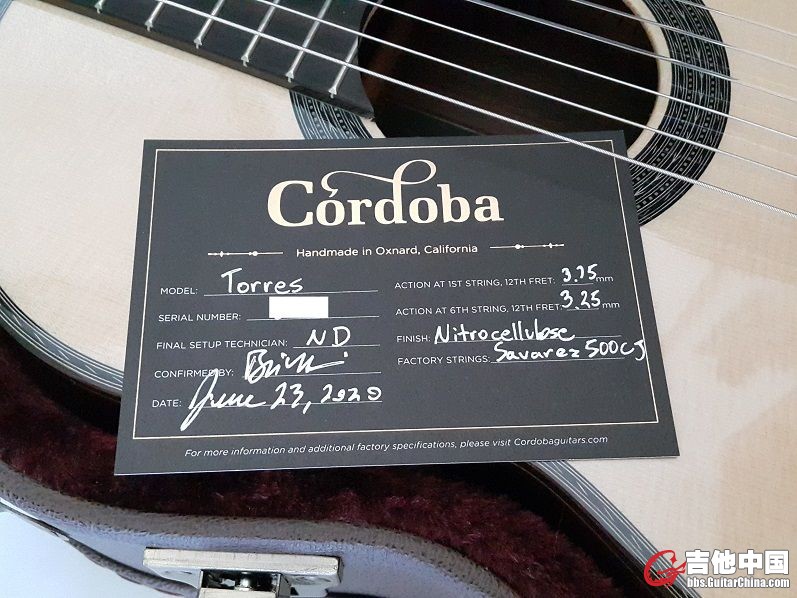 Córdoba
Handmade in Oxnard, California
MODEL: Torres
SERIAL NUMBER:
FINAL SETUP TECHNICIAN: ND
CONFIRMED BY:
DATE: June 23, 2020
ACTION AT 1ST STRING, 12TH FRET: 3.75 mm
ACTION AT 6TH STRING, 12TH FRET: 3.25 mm
FINISH: Nitrocellulose
FACTORY STRINGS: Savarez 500CJ
For more information and additional factory specifications, please visit Cordobaguitars.com
吉他中国
bbs.GuitarChina.com